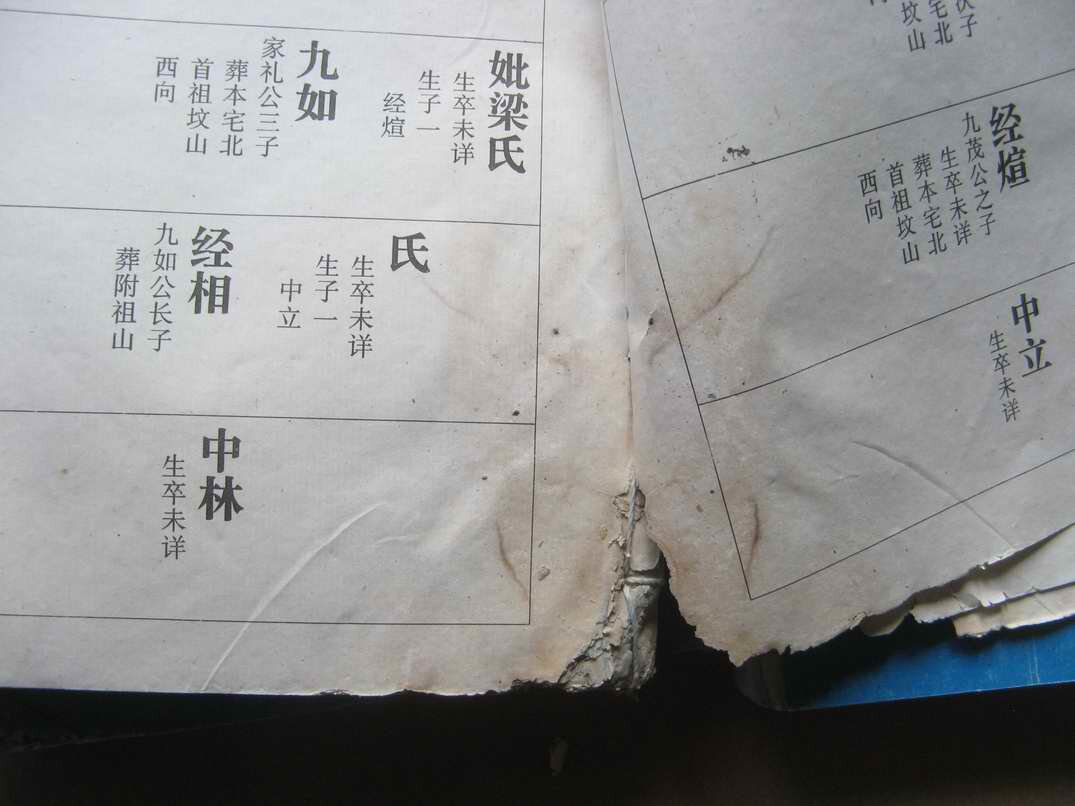 次子
宅北
坟山
经煊
九茂公之子
生卒未详
葬本宅北
首祖坟山
西向
中立
生卒未详
妣梁氏
生卒未详
生子一
经煊
九如
家礼公三子
葬本宅北
首祖坟山
西向
氏
生卒未详
生子一
中立
经相
九如公长子
葬附祖山
中林
生卒未详